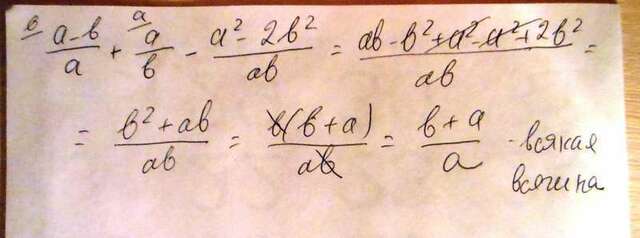 в) (a-b)/a + a/b - (a² - 2b²)/ab = (ab - b² + a² - a² + 2b²)/ab =
= (b² + ab)/ab = b(b + a)/ab = (b + a)/a - всякая
всячина